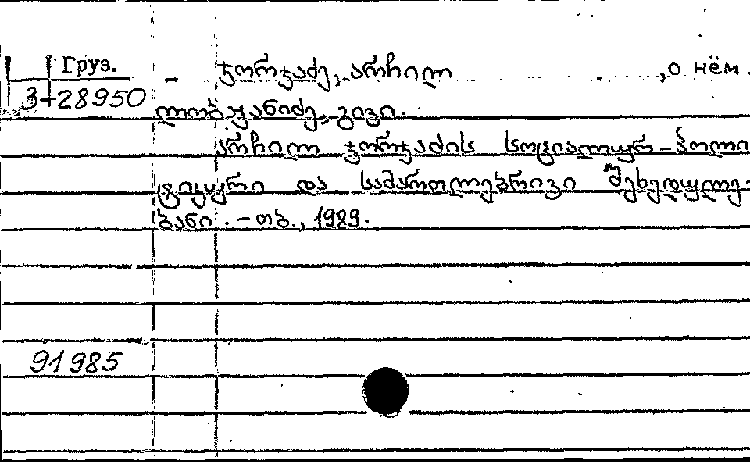 Груз.
3-28950
ჯორჯაძე, არჩილ ,о нём.
ლობჟანიძე, გივი.
არჩილ ჯორჯაძის სოციალურ-პოლი
ტიკური და სამართლებრივი შეხედულე-
ბანი. - თბ., 1989.
91985